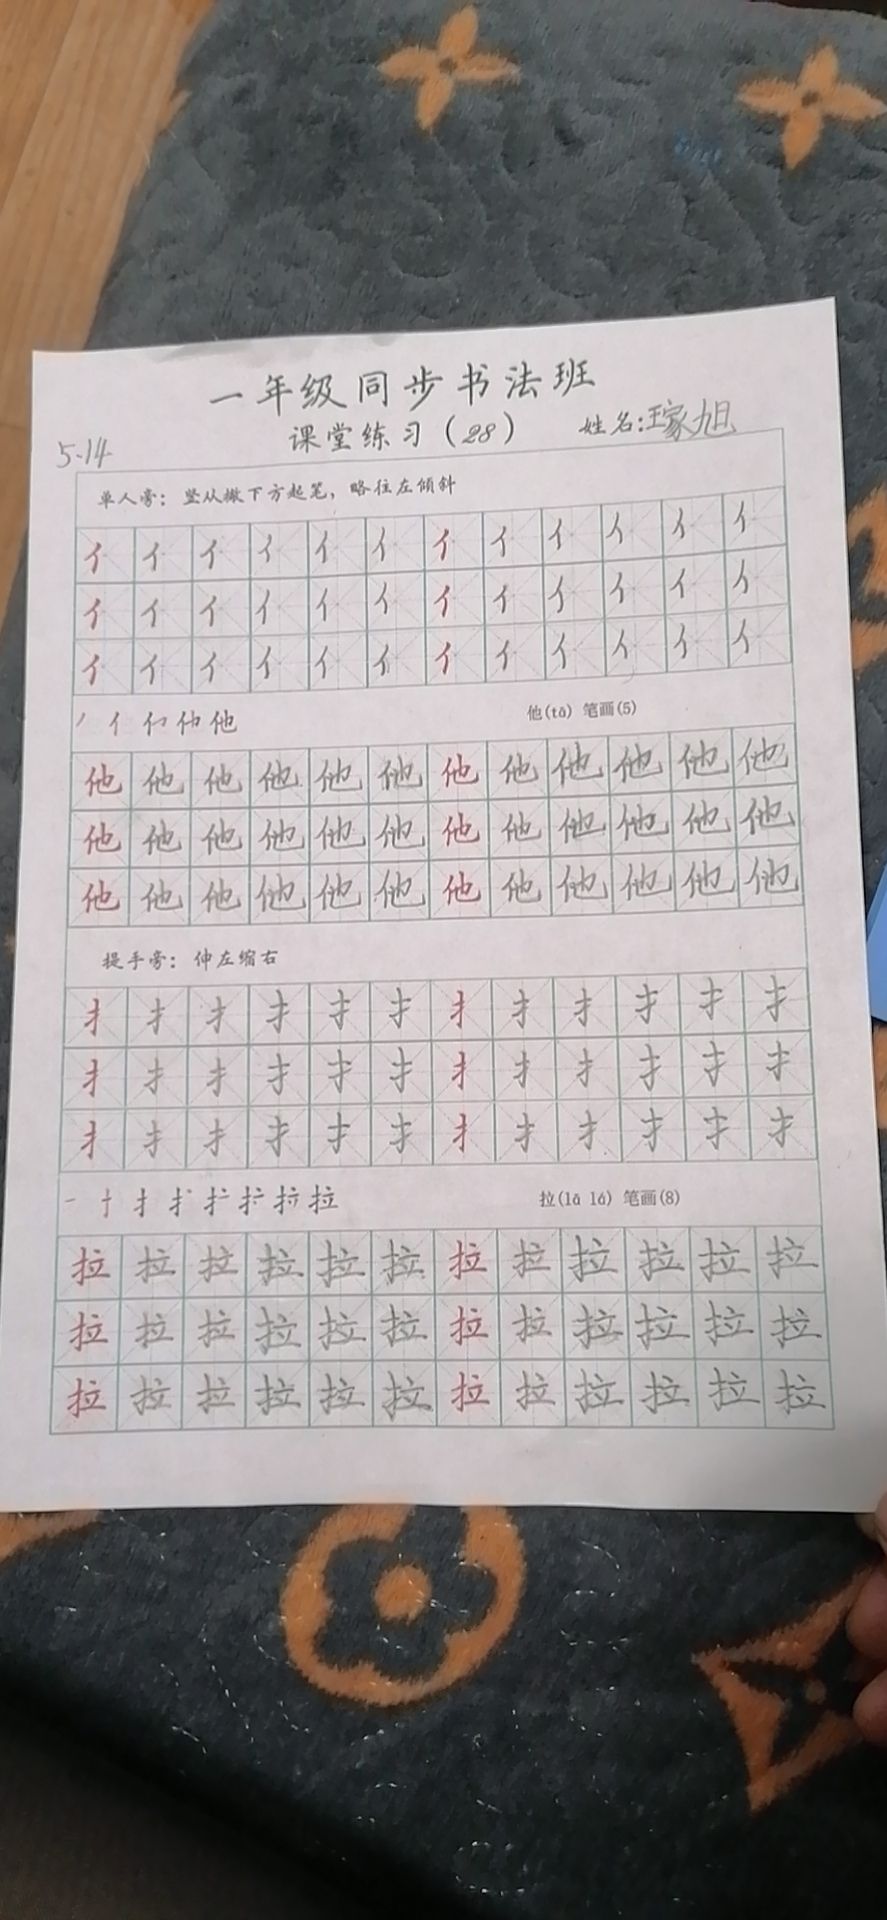 一年级同步书法班
课堂练习(28)
姓名:王家旭
5·14
单人旁：竖从撇下方起笔，略往左倾斜
亻 亻 亻 亻 亻 亻 亻 亻 亻 亻 亻 亻
亻 亻 亻 亻 亻 亻 亻 亻 亻 亻 亻 亻
亻 亻 亻 亻 亻 亻 亻 亻 亻 亻 亻 亻
他 他(tā) 笔画(5)
他 他 他 他 他 他 他 他 他 他 他 他
他 他 他 他 他 他 他 他 他 他 他 他
他 他 他 他 他 他 他 他 他 他 他 他
提手旁：伸左缩右
扌 扌 扌 扌 扌 扌 扌 扌 扌 扌 扌 扌
扌 扌 扌 扌 扌 扌 扌 扌 扌 扌 扌 扌
扌 扌 扌 扌 扌 扌 扌 扌 扌 扌 扌 扌
拉 拉(lā lá) 笔画(8)
拉 拉 拉 拉 拉 拉 拉 拉 拉 拉 拉 拉
拉 拉 拉 拉 拉 拉 拉 拉 拉 拉 拉 拉
拉 拉 拉 拉 拉 拉 拉 拉 拉 拉 拉 拉